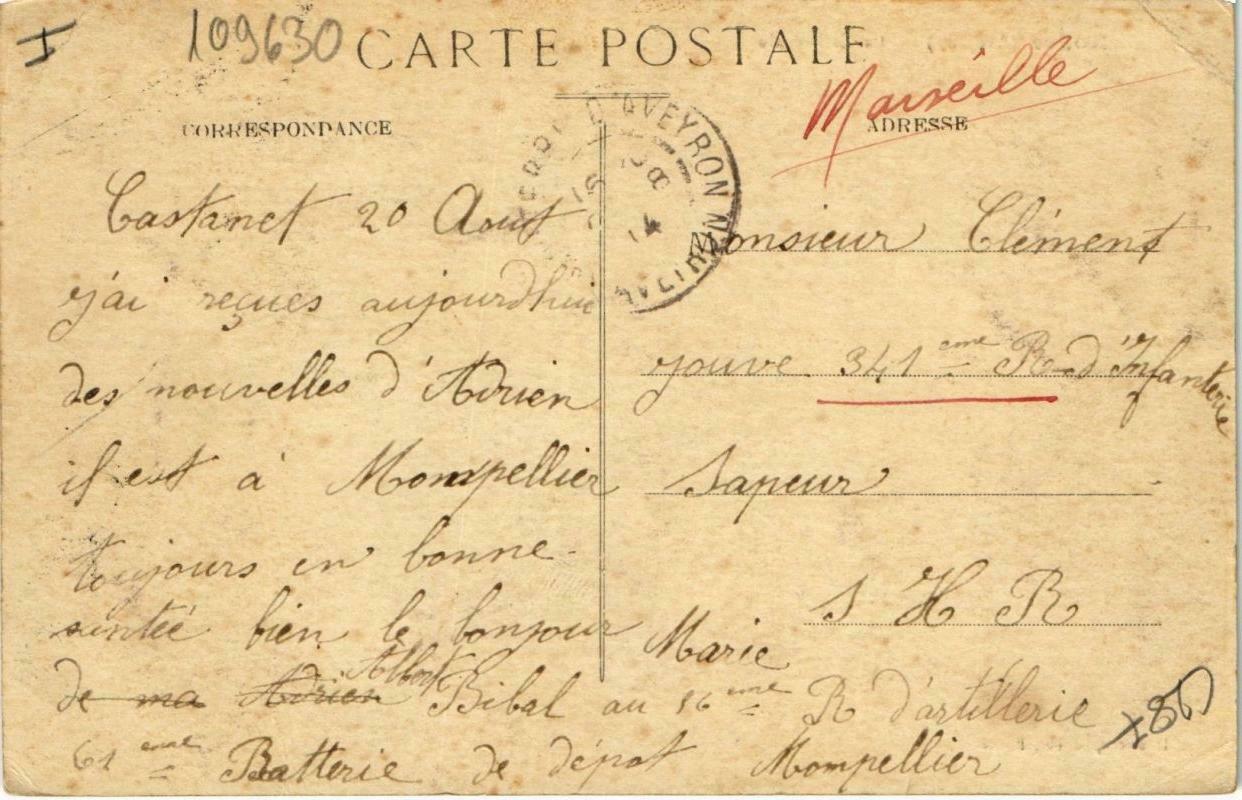 109630
CARTE POSTALE
Marseille
CORRESPONDANCE
ADRESSE
AVEYRON
AVEYRON
16 8
14
Castanet 20 Aout
j'ai reçues aujourdhui
des nouvelles d'Adrien
il est à Mompellier
toujours en bonne
sintée bien le bonjour
Marie
de ma Adrien Albert Bibal au 56 eme R d'artillerie
61 eme Batterie de dépot Mompellier
Monsieur Clément
Jouve 341 eme R d'Infanterie
Sapeur
S H R